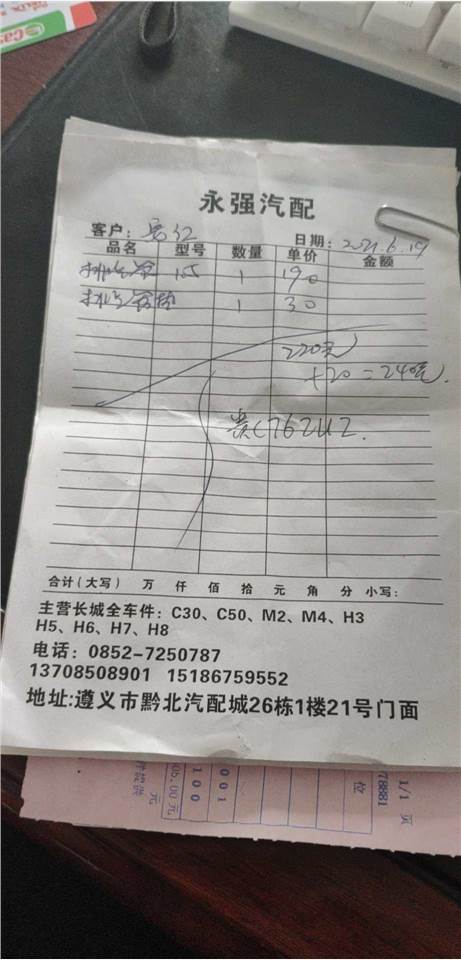 永强汽配
客户： 日期：2021.6.19
品名 型号 数量 单价 金额
排气管 105 1 190
排气管垫 1 30
220元
+20=240元.
贵C762U2.
合计（大写） 万 仟 佰 拾 元 角 分 小写：
主营长城全车件：C30、C50、M2、M4、H3
H5、H6、H7、H8
电话：0852-7250787
13708508901 15186759552
地址:遵义市黔北汽配城26栋1楼21号门面
1/1 页
78881
位
0001
100
元